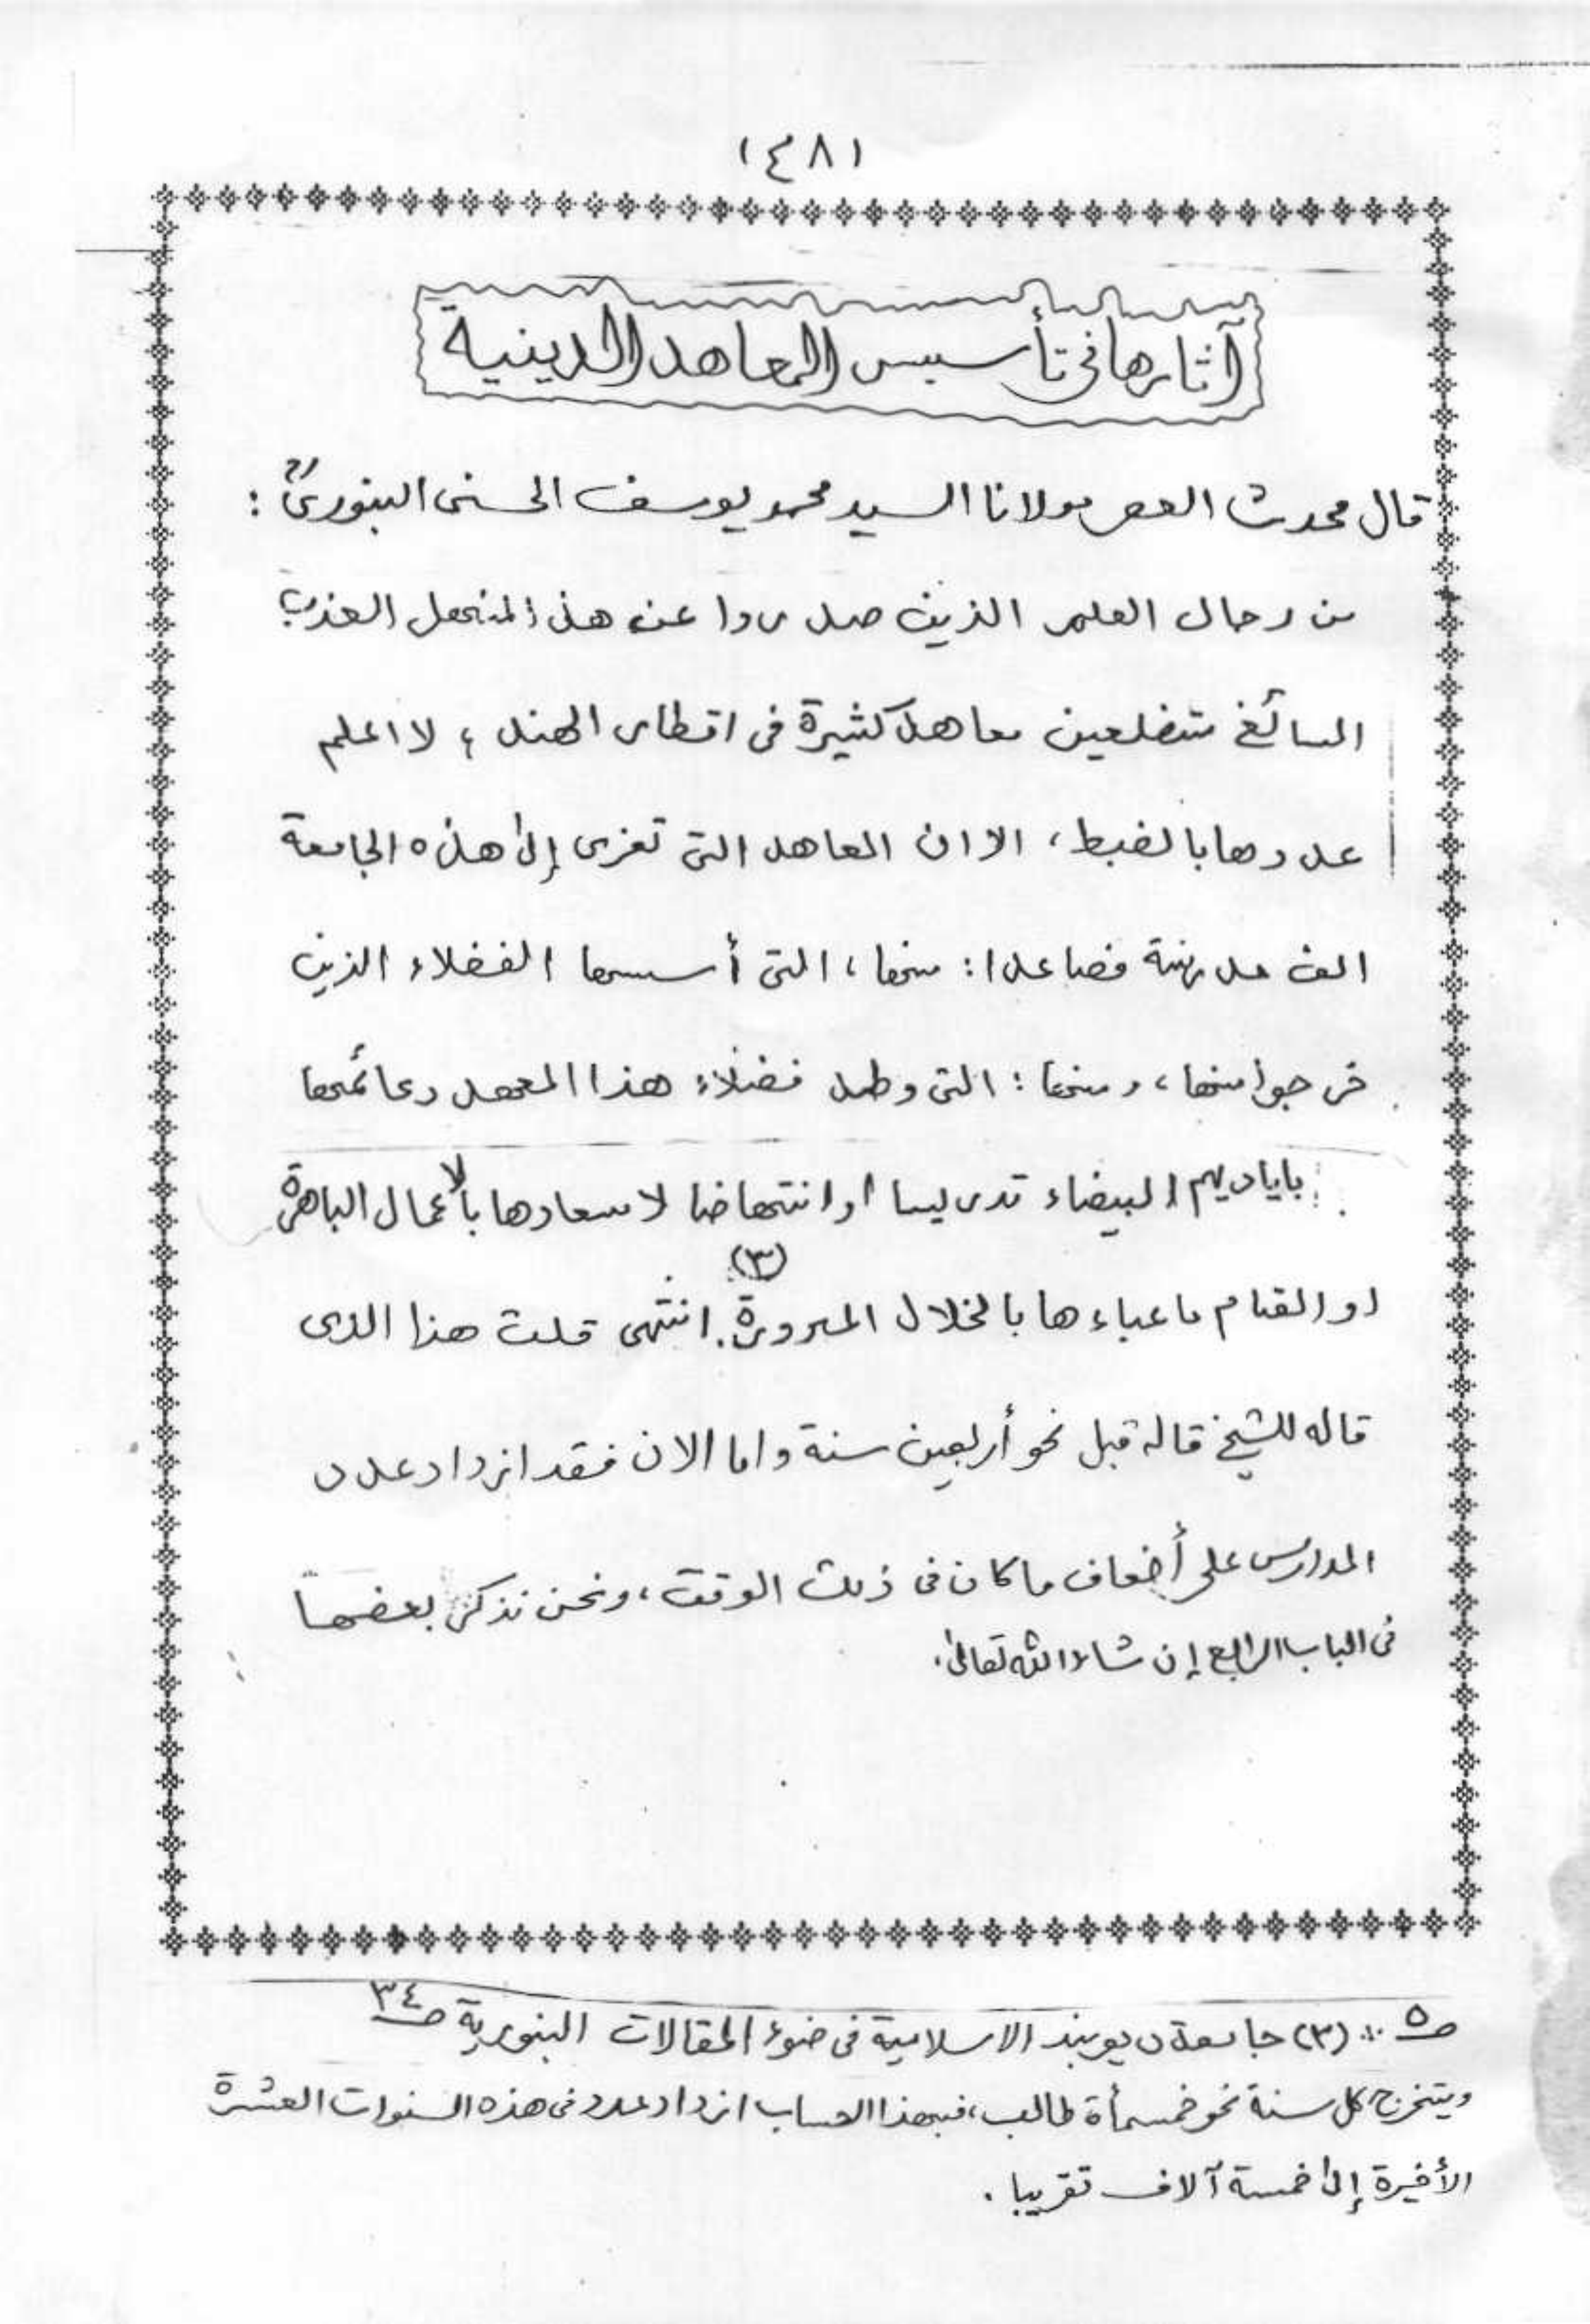 (٤٨١
آثارها في تأسيس المعاهد الدينية
قال محدث العصر مولانا السيد محمد يوسف الحسني البنوريؒ :
من رجال العلم الذين صدروا عن هذا المنهل العذب
السائغ متضلعين معاهد كثيرة في اقطار الهند ، لا اعلم
عددها بالضبط ، الا ان المعاهد التي تعزى إلى هذه الجامعة
الف مدرسة فصاعدا : منها ، التي أسسها الفضلاء الذين
خرجوا منها ، ومنها : التي وطد فضلاء هذا المعهد دعائمها
باياديهم البيضاء تدريسا او انتهاضا لاسعادها بالأعمال الباهرة
او القيام باعباءها بالخلال المبرورة. (٣) انتهى قلت هذا الذى
قاله للشيخ قاله قبل نحو أربعين سنة واما الان فقد ازداد عدد
المدارس على أضعاف ما كان في ذلك الوقت ، ونحن نذكر بعضها
في الباب الرابع إن شاء الله تعالى .
صـ٥ :. (٣) جامعة ديوبند الاسلامية في ضوء المقالات البنورية صـ٣٤
ويتخرج كل سنة نحو خمسمأة طالب ، فبهذا الحساب ازداد عدد في هذه السنوات العشرة
الأخيرة إلى خمسة آلاف تقريبا .